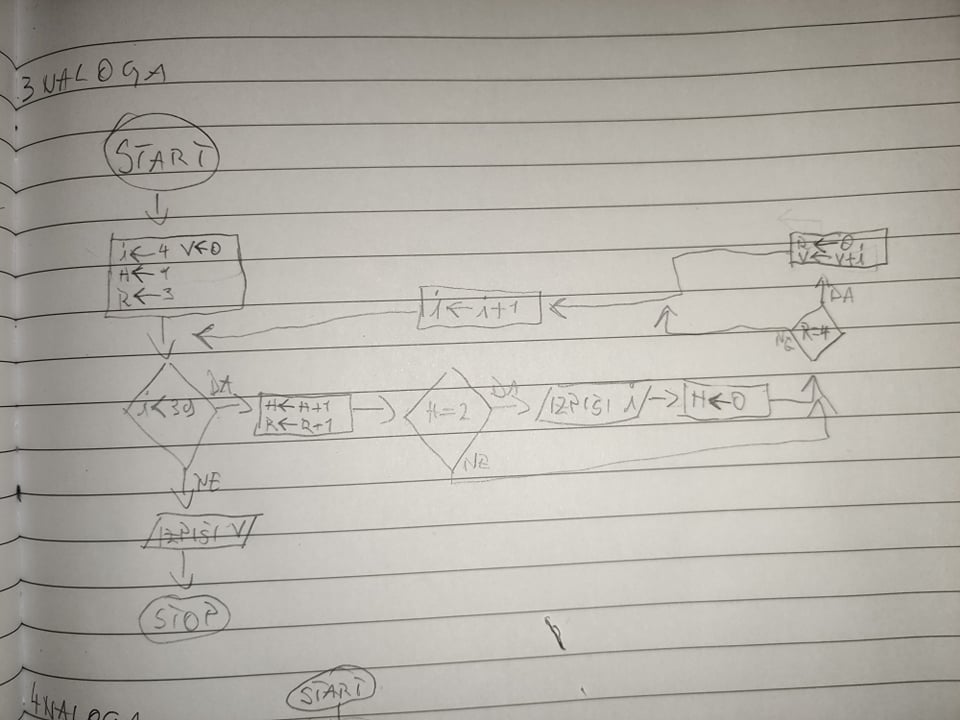 3 NALOGA
START
i←4 V←0
H←1
R←3
i<39
DA
H←H+1
R←R+1
H=2
DA
/IZPIŠI i/
H←0
NE
R=4
DA
NE
R←0
V←V+i
i←i+1
NE
/IZPIŠI V/
STOP
4 NALOGA
START